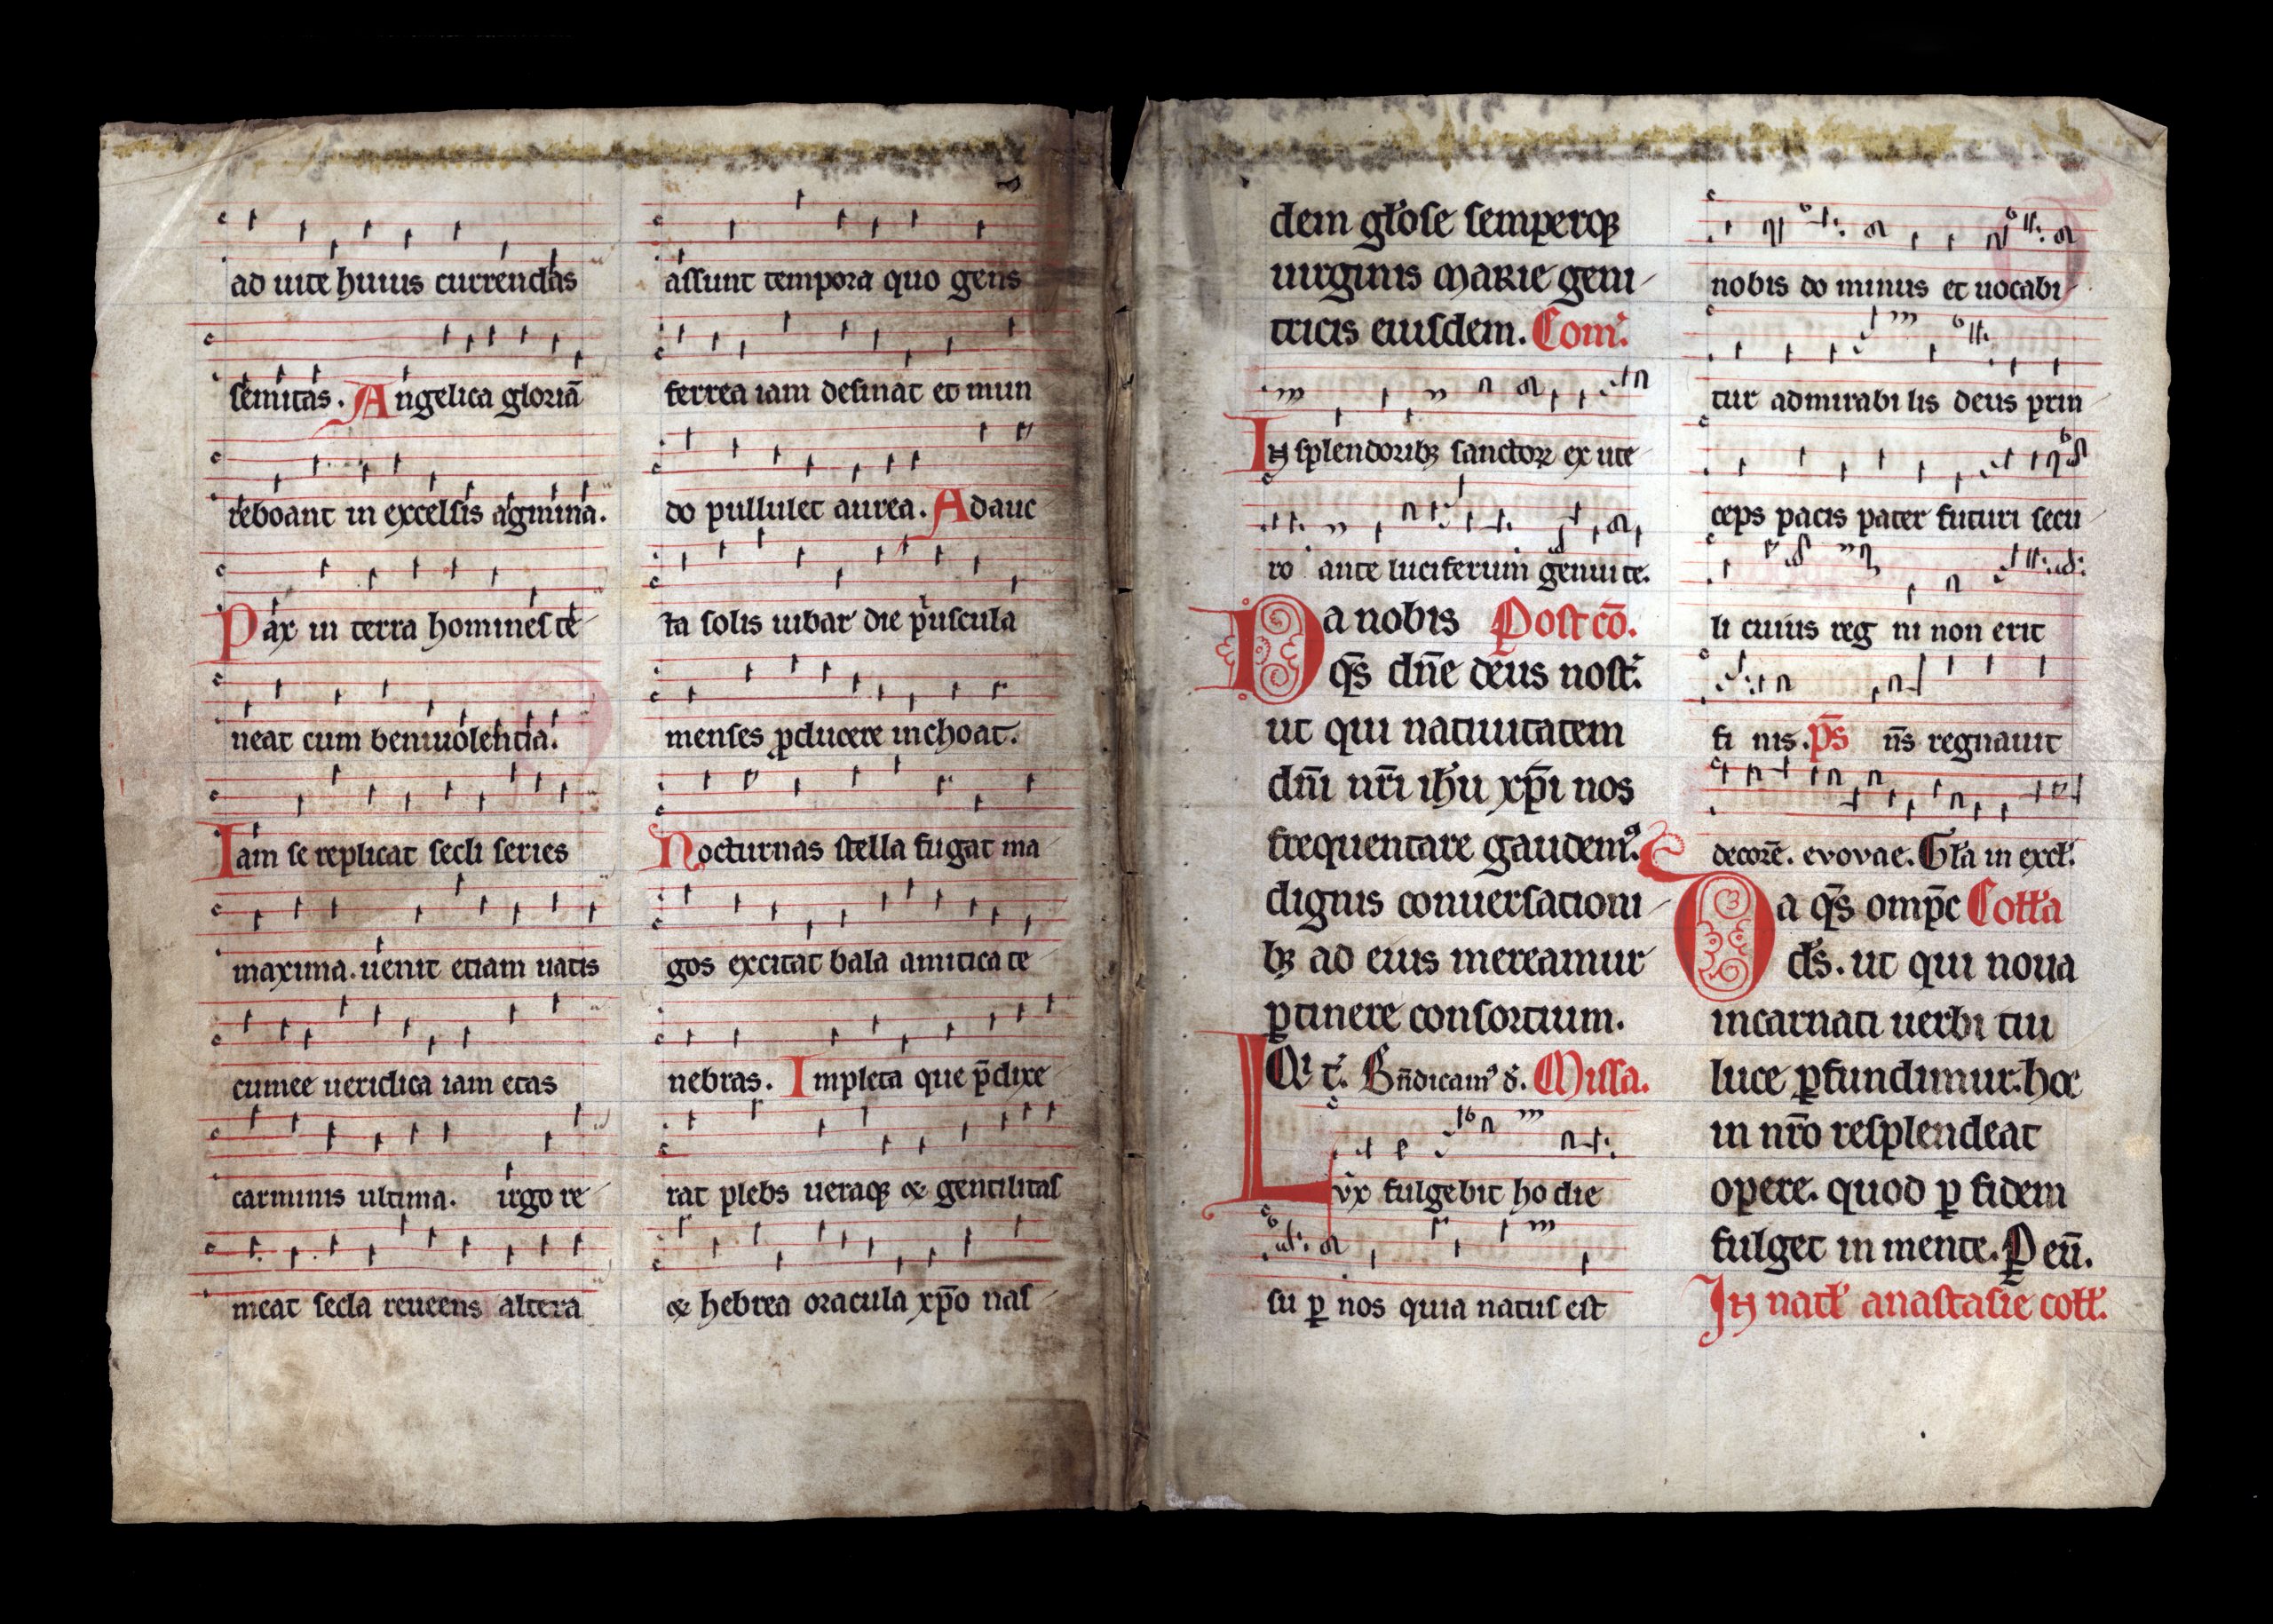 ad uite huius currendas
semitas. Angelica gloriā
reboant in excelsis agmina.
Pax in terra homines te
neat cum beniuolentia.
Iam se replicat secli series
maxima. uenit etiam uatis
cumee ueridica iam etas
carminis ultima. irgo re
meat secla reueens altera
assunt tempora quo gens
ferrea iam desinat et mun
do pullulet aurea. Adauc
ta solis iubar die p̲uscula
menses ꝓducere inchoat.
Nocturnas stella fugat ma
gos excitat bala amitica te
nebras. Impleta que p̄dixe
rat plebs ueraqꝫ & gentilitas
& hebrea oracula xp̄o nas
dem gl'ose semperqꝫ
uirginis marie geni
tricis eiusdem. Com̄.
In splendoribꝫ sanctoꝝ ex ute
ro ante luciferum genui te.
Da nobis Post cō.
q̄s dn̄e deus nost'.
ut qui natiuitatem
dn̄i nr̄i ih'u xp̄i nos
frequentare gaudemꝰ.
dignis conuersationi
bꝫ ad eius mereamur
ꝑtinere consortium.
Qi t'. Bn̄dicamꝰ d'. Missa.
Lvx fulgebit ho die
su ꝑ nos quia natus est
nobis do minus et uocabi
tur admirabi lis deus prin
ceps pacis pater futuri secu
li cuius reg ni non erit
fi nis. p̄s n̄s regnauit
decorē. evovae. Gl'a in excl'.
Da q̄s omp̄c Coll'a
d's. ut qui noua
incarnati uerbi tui
luce ꝑfundimur. hoc
in nr̄o resplendeat
opere. quod ꝑ fidem
fulget in mente. Ꝑ eū.
In natl' anastasie coll'.